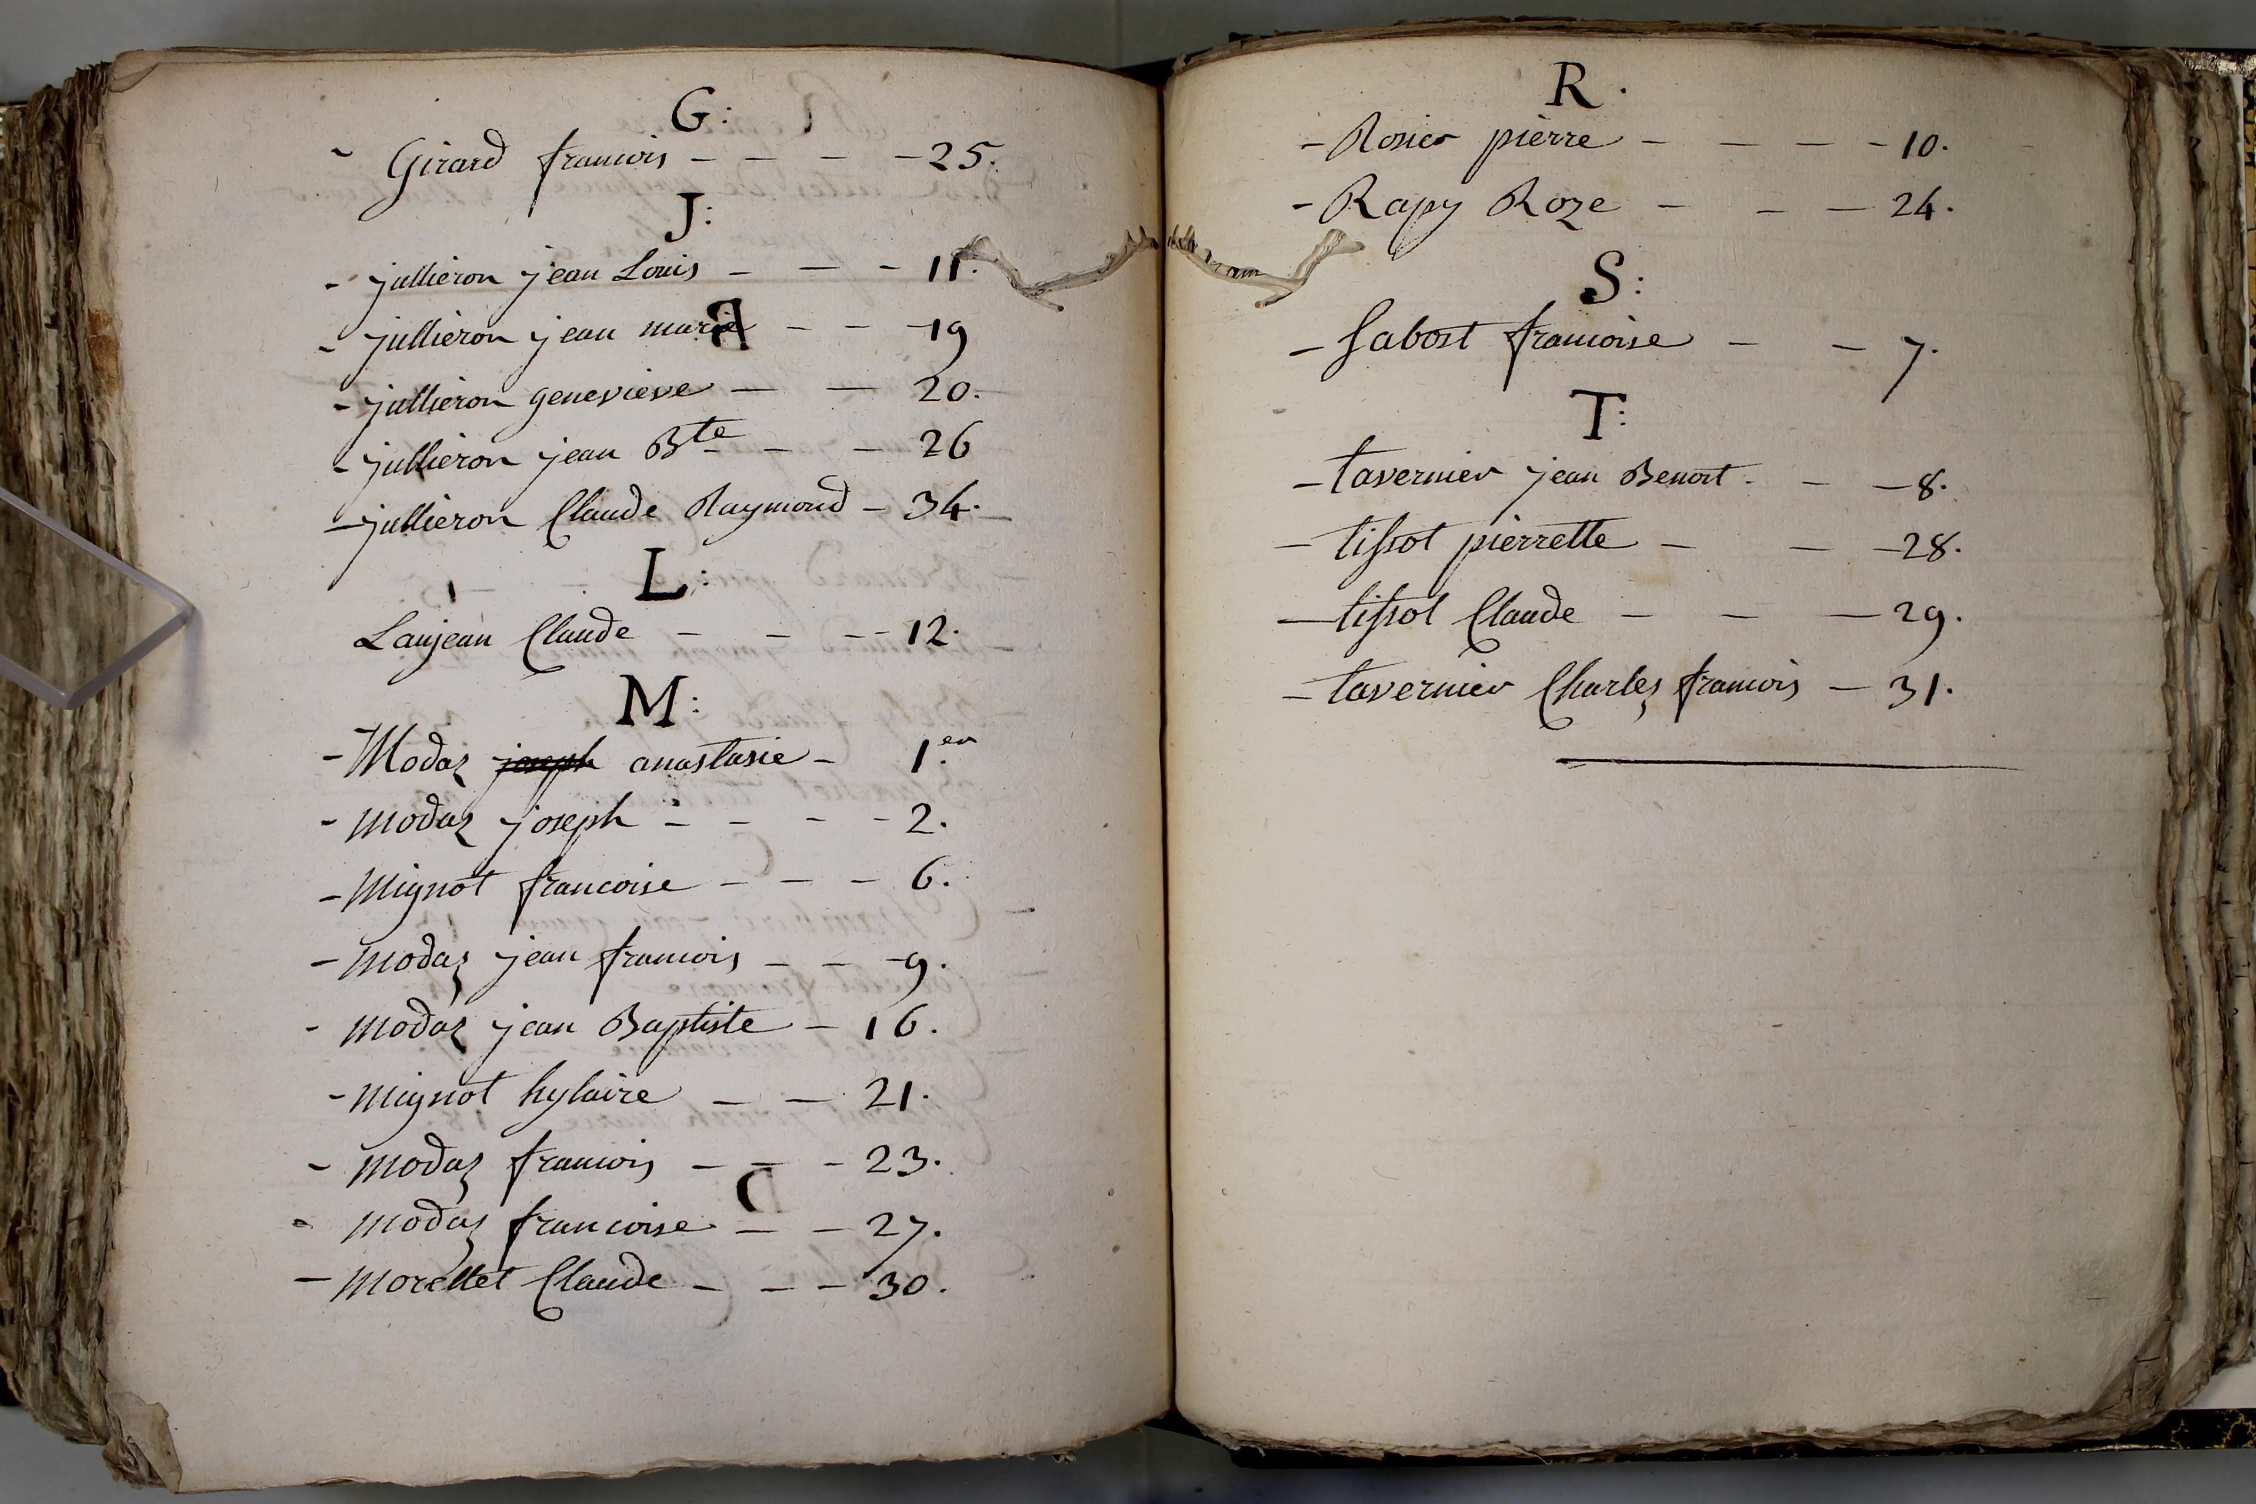 G:
- Girard francois - - - - 25.
J:
- jullieron jean Louis - - - 11.
- jullieron jean marie - - - 19
- jullieron genevieve - - 20.
- jullieron jean Bte - - - 26
- jullieron Claude Raymond - 34.
L:
Laujean Claude - - - - 12.
M:
- Modaz joseph anastasie - 1.er
- modaz joseph - - - - 2.
- mignot francoise - - - 6.
- modaz jean francois - - - 9.
- modaz jean Baptiste - 16.
- mignot hylaire - - 21.
- modaz francois - - - 23.
- modaz francoise - - 27.
- morettet Claude - - - 30.
R.
- Rosier pièrre - - - - 10.
- Rapy Roze - - - 24.
S:
- Sabost francoise - - 7.
T:
- tavernier jean Benoit - - - 8.
- tissot pierrette - - - 28.
- tissot Claude - - - 29.
- tavernier Charles francois - 31.